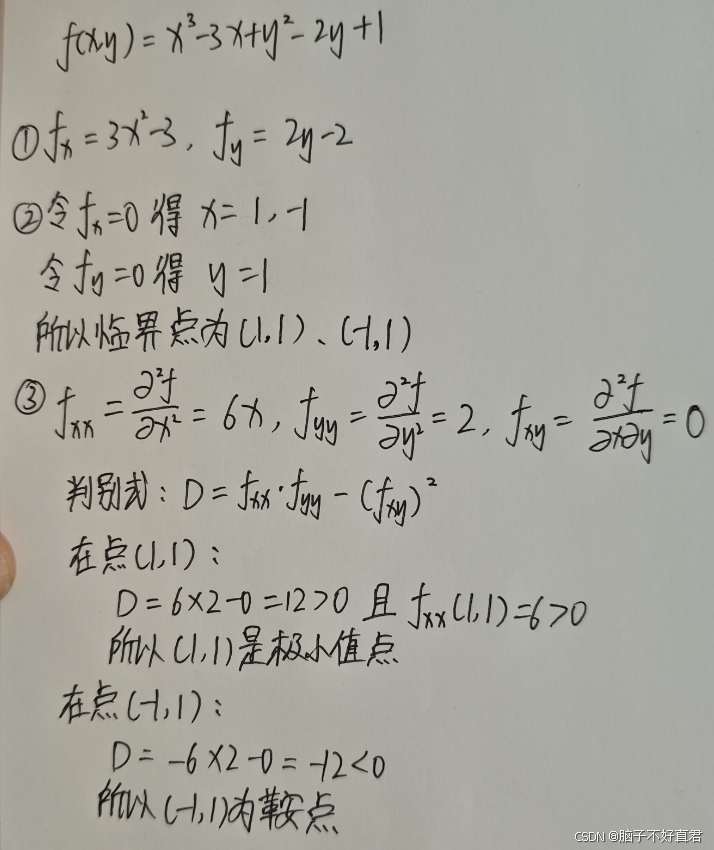 f(x,y) = x³-3x+y²-2y+1
①fx = 3x²-3, fy = 2y-2
②令fx=0 得 x=1,-1
令fy=0得 y=1
所以临界点为(1,1)、(-1,1)
③ fxx = ∂²f/∂x² = 6x, fyy = ∂²f/∂y² = 2, fxy = ∂²f/∂x∂y = 0
判别式: D = fxx·fyy - (fxy)²
在点(1,1):
D = 6×2-0 = 12>0 且 fxx(1,1)=6>0
所以(1,1)是极小值点
在点(-1,1):
D = -6×2-0 = -12<0
所以(-1,1)为鞍点
CSDN @脑子不好直君